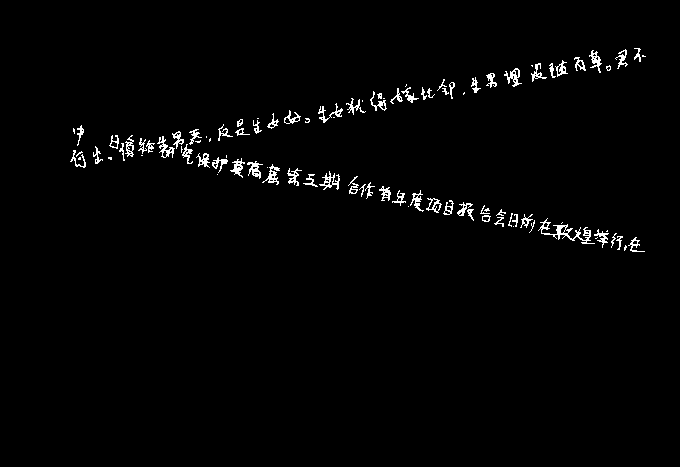 何出。信知生男恶,反是生女好。生女犹得嫁比邻,生男埋没随百草。君不
中日合作研究保护莫高窟第五期合作首年度项目报告会日前在敦煌举行,在